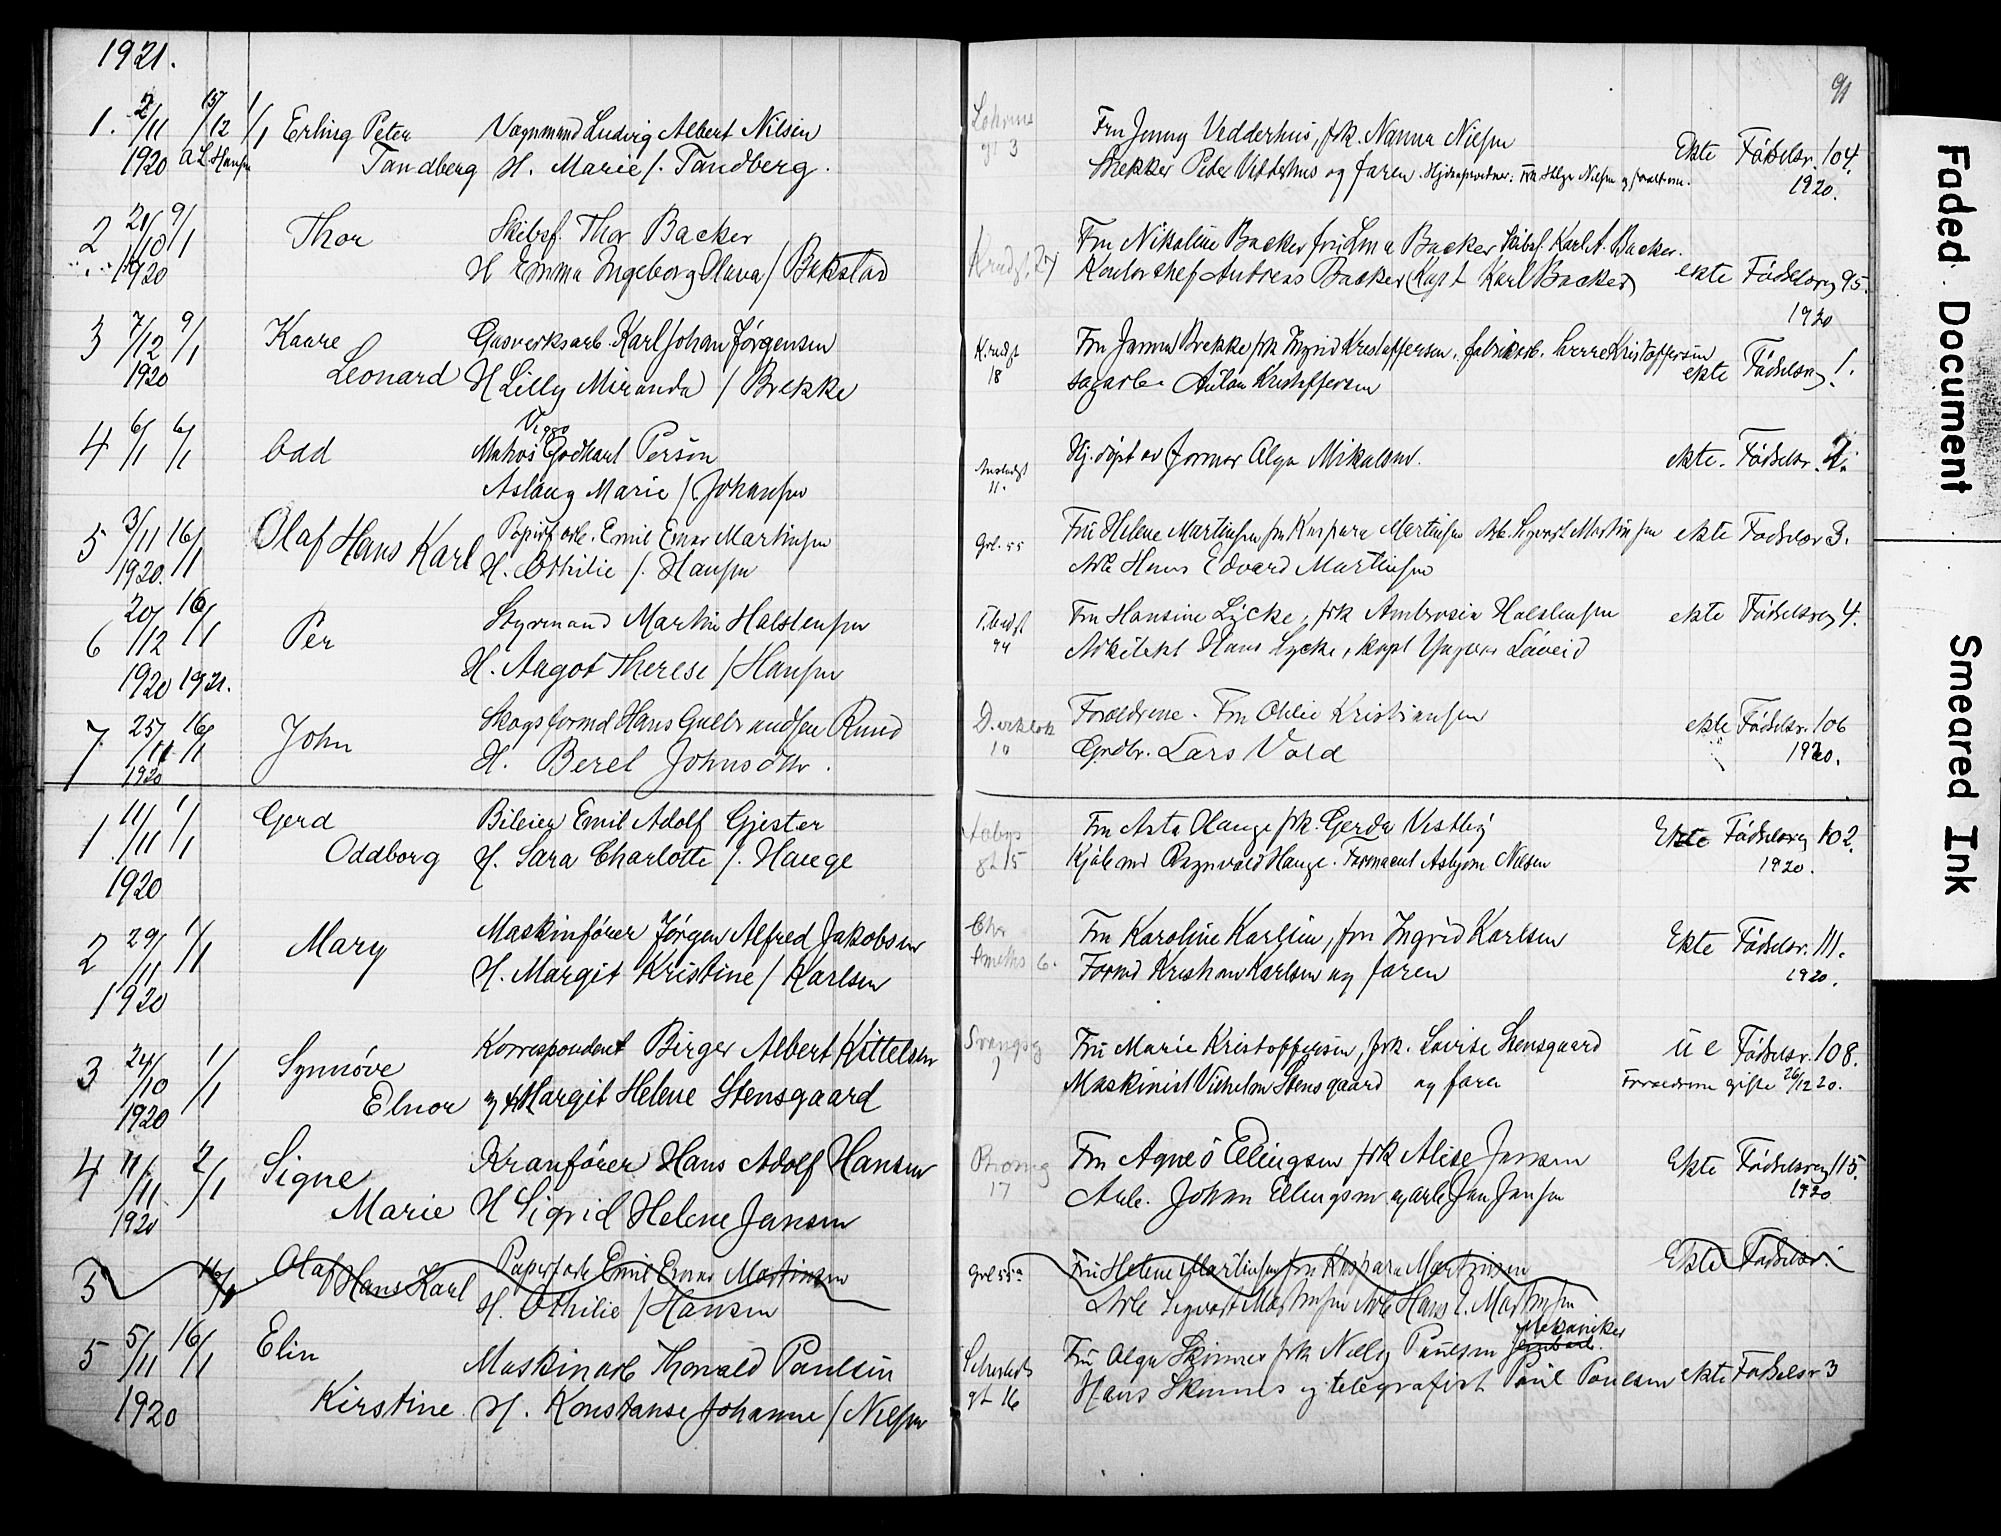 1921.
91
1. 2/11 15/12 1/1 Erling Peter Vognmand Ludvig Albert Nilsen
1920 A L Hansen Tandberg H. Marie f. Tandberg.
gt 3 Fru Jenny Vedderhus, frk. Nanna Nielsen
Snekker Peder Vedderhus og faren. Ekte Fødselsr. 104.
1920.
2 21/10 9/1 Thor Skibsf. Thor Backer
1920 H Emma Ingeborg Olava / Bakstad
Krudgt. 27 Fru Nikoline Backer fru Backer Skibsf. Karl A. Backer.
Kontorchef Andreas Backer (Kapt Karl Backer) ekte Fødselsreg 95.
1920
3 7/12 9/1 Kaare Gasverksarb. Karl Johan Jørgensen
1920 Leonard H Lilly Miranda / Brekke
Krudgt 18 Fru Brekke frk Ingrid Kristoffersen. fabrikarb. Kristoffersen
sagarb. Anton Kristoffersen ekte Fødselsreg 1.
4 6/1 6/1 Odd Viggo
Godhart Person
Aslaug Marie / Johansen
11. Hj. døpt av jormor Alga Mikalsen. ekte. Fødselsr. 2.
5 3/11 16/1 Olaf Hans Karl Papirfarb. Emil Einar Martinsen
1920. H. Othilie f. Hansen
Grl. 55 Fru Helene Martinsen fru Kaspara Martinsen Arb. Sigvart Martinsen ekte Fødselsr 3.
Arb Hans Edvard Martinsen
6 20/12 16/1 Per Styrmand Martin Halstensen
1920 1921. H. Aagot Therese / Hansen
94 Fru Hansine Lycke, frk Ambrosia Halstensen ekte Fødselsreg 4.
Arkitekt Hans Lycke, kapt Yngvar
7 25/11 16/1 John Skogsformd Hans Gulbrandsen Ruud
1920 H. Berel Johnsdtr.
10 Forældrene. Fru Othlie Kristiansen ekte Fødselsr. 106
Grdbr. Lars Vold 1920.
1 11/11 1/1 Gerd Bileier Emil Adolf Gjester
1920 Oddborg H. Sara Charlotte f. Hauge
gt 15 Fru Asta Olauge frk. Gerda Vestby Ekte Fødselsreg 102.
Kjøbmd Ragnvald Hauge. Farmaceut Asbjørn Nilsen 1920.
2 29/11 1/1 Mary Maskinfører Jørgen Alfred Jakobsen
1920 H. Margit Kristine / Karlsen
Chr Smeths 6. Fru Karoline Karlsen, fru Ingrid Karlsen Ekte Fødselsr. 111.
Formd Kristian Karlsen og faren 1920.
3 24/10 1/1 Synnøve Korrespondent Birger Albert Kittelsen
1920 Elnor og Margit Helene Stensgaard
1 Fru Marie Kristoffersen, frk. Lovise Stensgaard u e Fødselsr. 108.
Maskinist Vilhelm Stensgaard og faren Forældrene gifte 26/12 20.
4 11/11 2/1 Signe Kranfører Hans Adolf Hansen
1920 Marie H Sigrid Helene Jansen
17 Fru Agnes Ellingsen frk Alise Jansen Ekte Fødselsreg 115.
Arb. Johan Ellingsen og arb Jan Jansen 1920
5 16/1 Olaf Hans Karl Papirfarb Emil Einar Martinsen
H. Othilie / Hansen
Grl 55a Fru Helene Martinsen fru Kaspara Martinsen Ekte Fødselsr.
Arb Sigvart Martinsen Arb Hans E. Martinsen
5 5/11 16/1 Elin Maskinarb Thorvald Paulsen
1920 Kirstine H. Konstanse Johanne / Nilsen
gt 16 Fru Olga Skinnes frk Nelly Paulsen Mekaniker
Hans Skinnes og telegrafist Paul Paulsen ekte Fødselsr 3
Faded Document
Smeared Ink